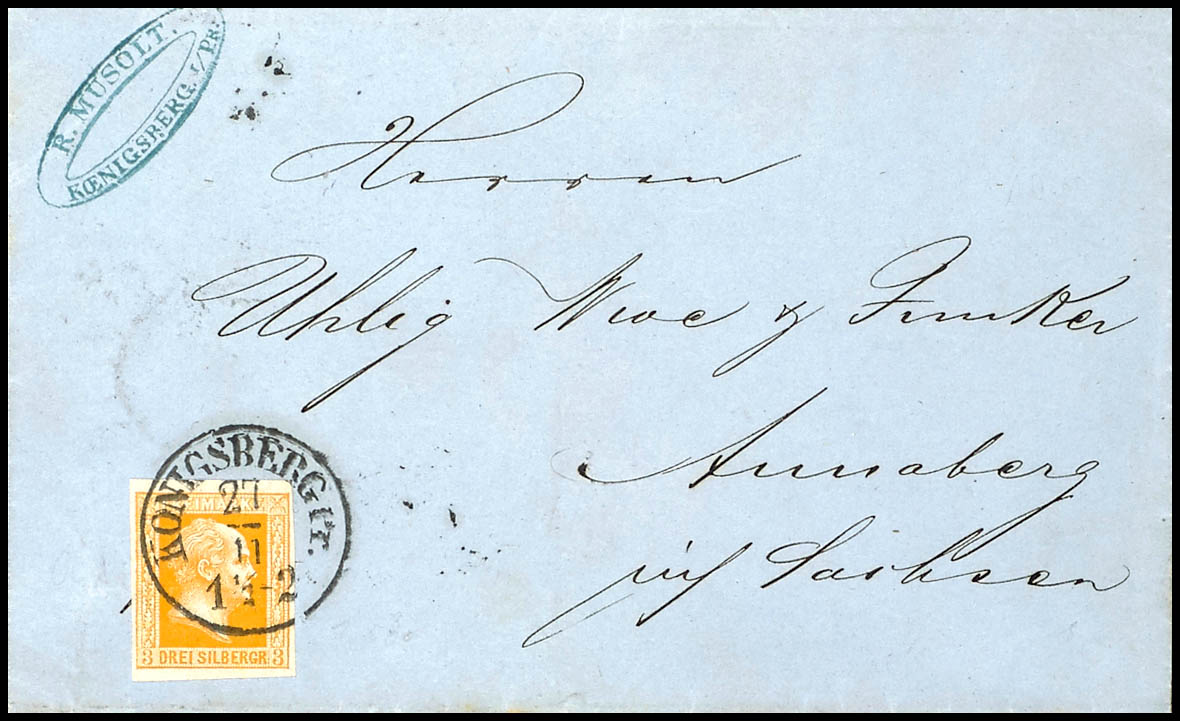 R. MUSOLT.
KŒNIGSBERG. I/PR.
Herren
Uhlig & Junker
Annaberg
in Sachsen
KÖNIGSBERG Pr.
27
11
1½-2
MARK
3 DREI SILBERGR. 3